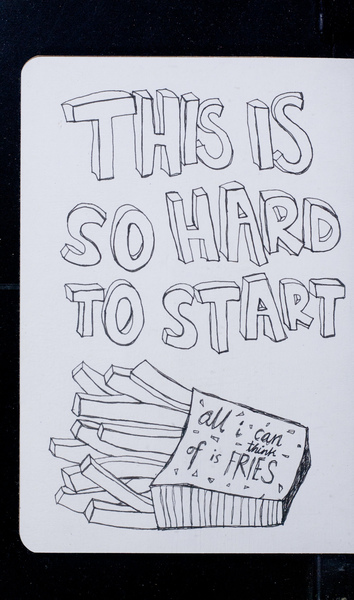 THIS IS
SO HARD
TO START
all i can
think
of is FRIES